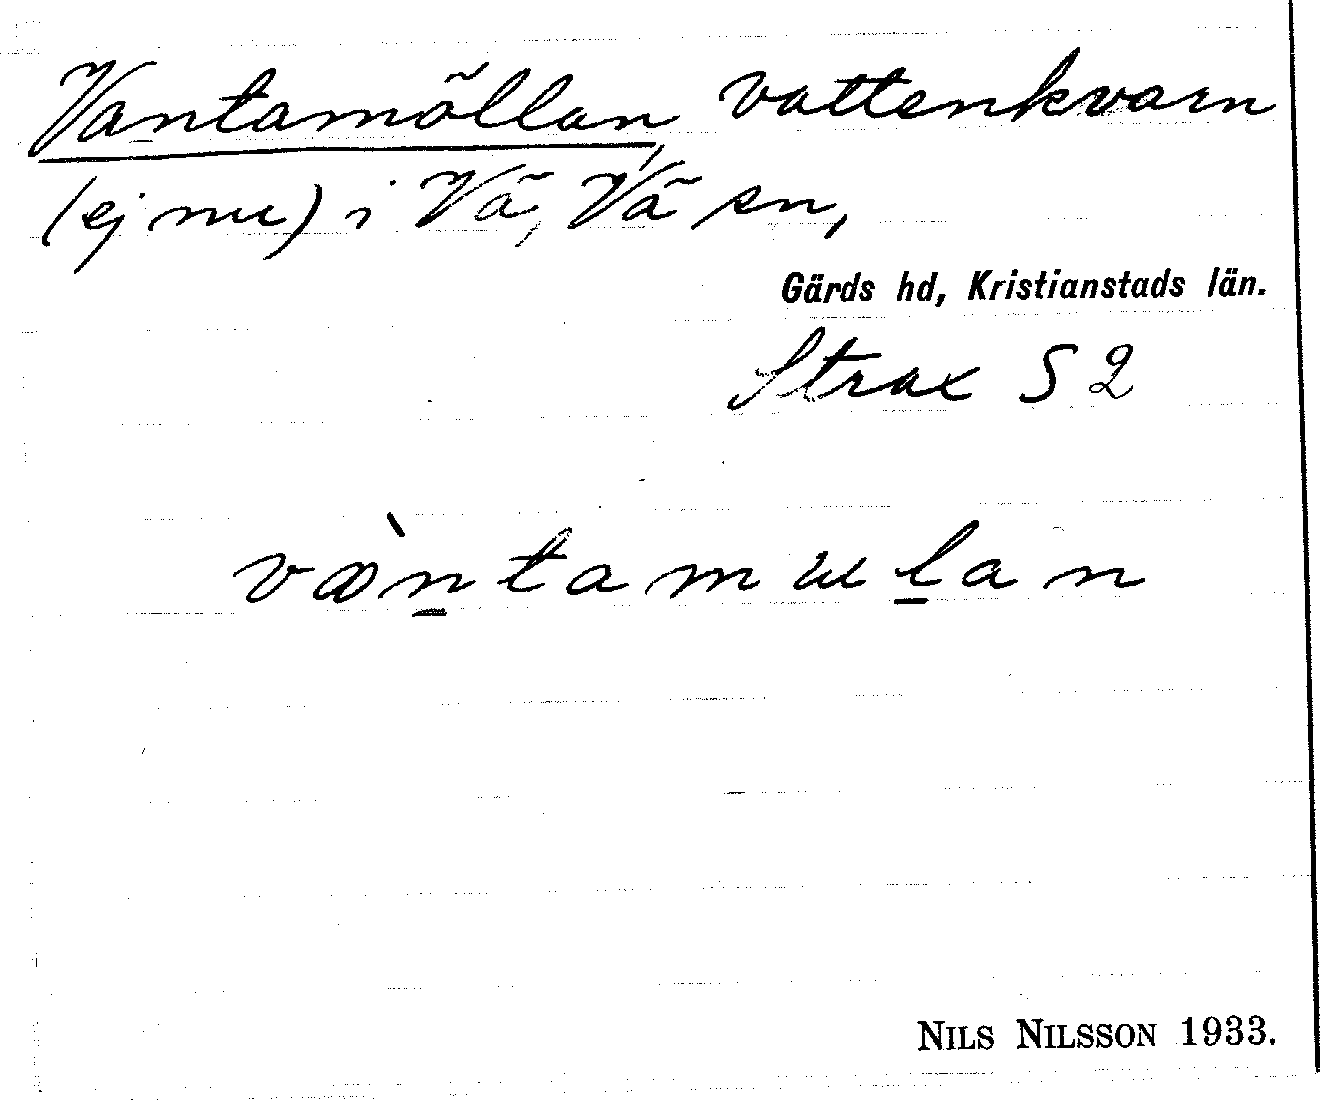 Vantamöllan, vattenkvarn
(ej nu) i Vä, Vä sn,
Gärds hd, Kristianstads län.
Strax S 2
NILS NILSSON 1933.